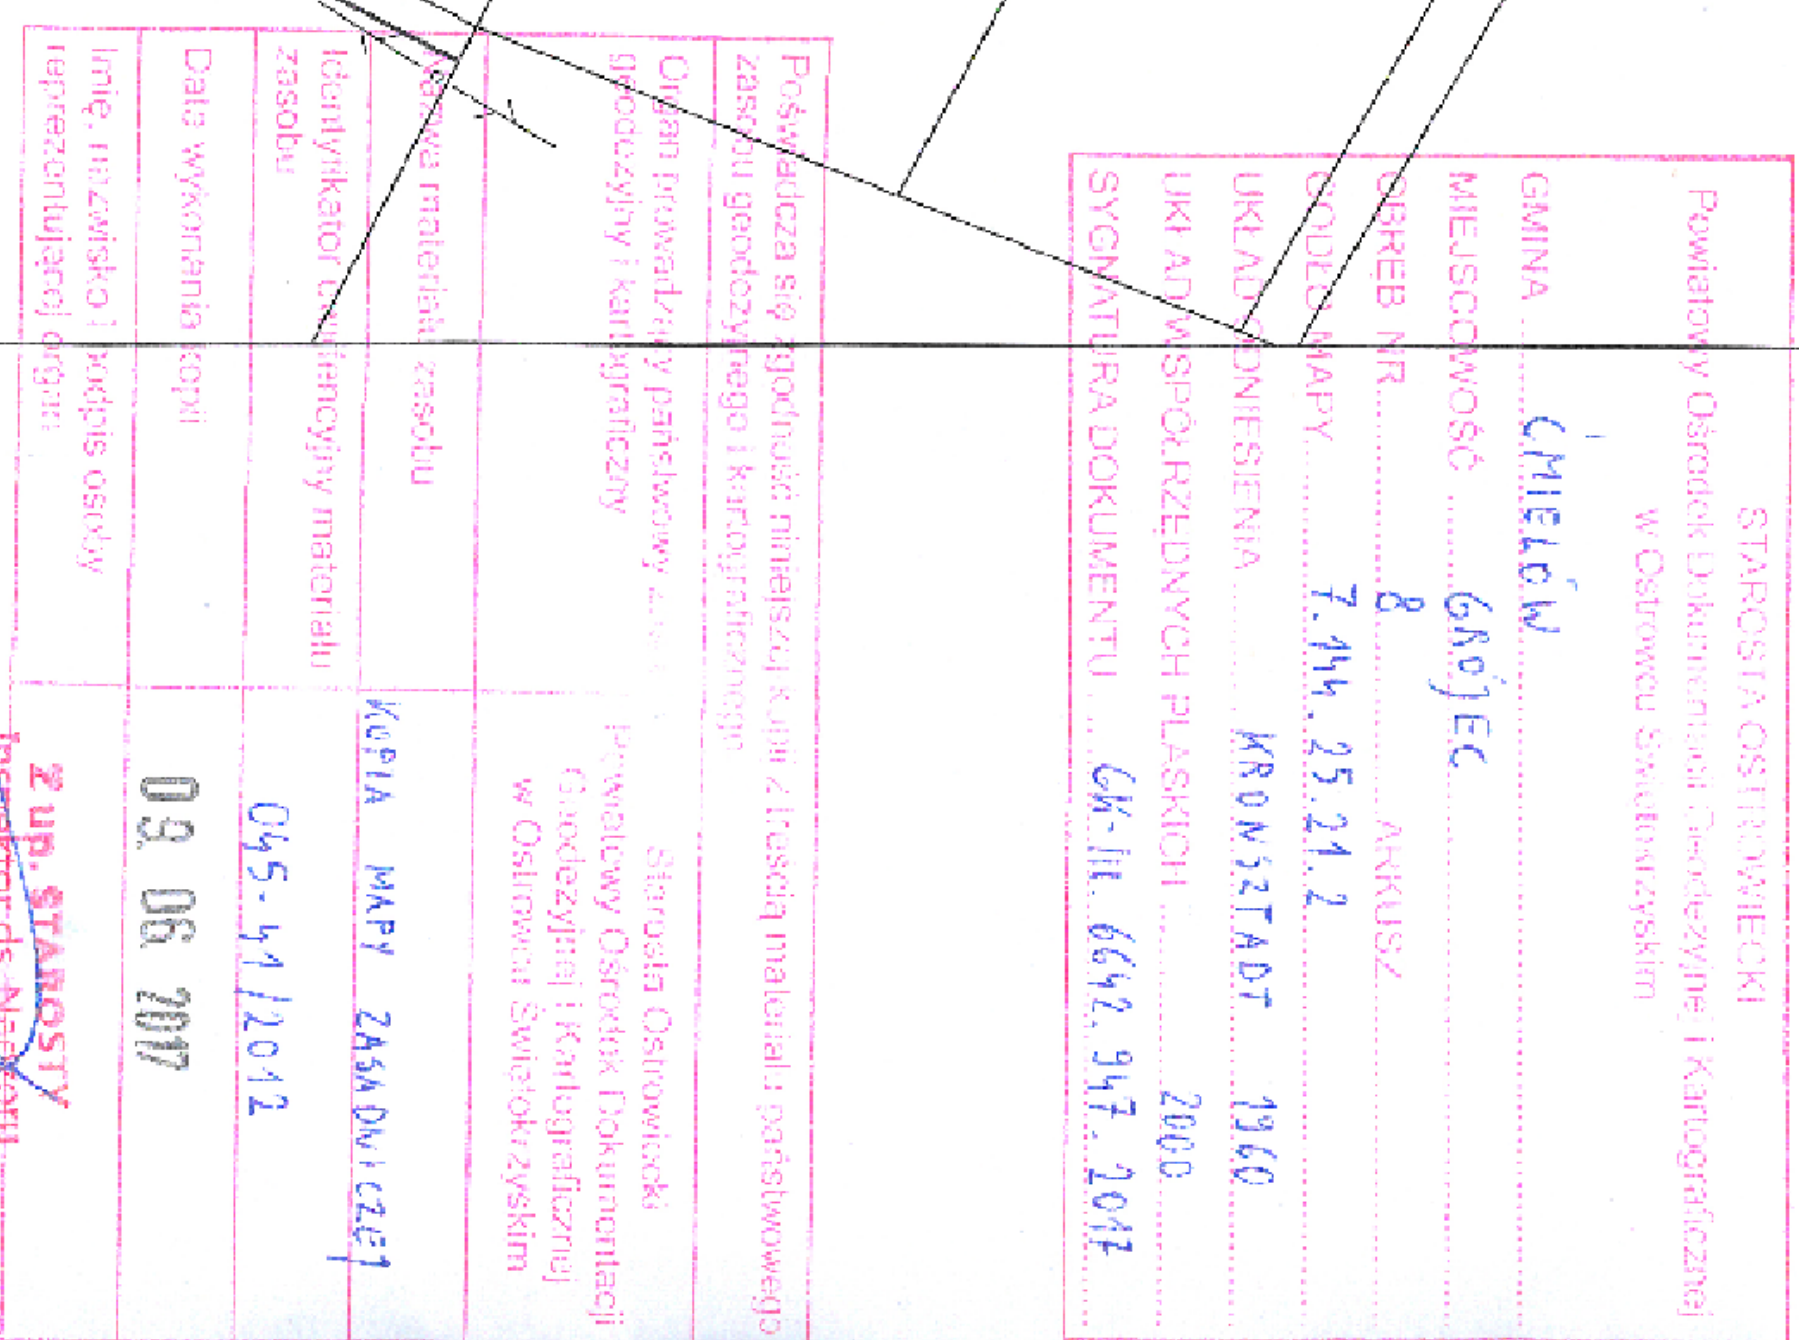 STAROSTA OSTROWIECKI
Powiatowy Ośrodek Dokumentacji Geodezyjnej i Kartograficznej
w Ostrowcu Świętokrzyskim
GMINA ĆMIELÓW
MIEJSCOWOŚĆ GROJEC
OBRĘB NR 8 ARKUSZ
GODŁO MAPY 7.144.25.21.2
UKŁAD ODNIESIENIA KRONSZTADT 1960
UKŁAD WSPÓŁRZĘDNYCH PŁASKICH 2000
SYGNATURA DOKUMENTU GK-III.6642.947.2017
Poświadcza się zgodność niniejszej kopii z treścią materiału państwowego
zasobu geodezyjnego i kartograficznego
Organ prowadzący państwowy zasób
geodezyjny i kartograficzny
Starosta Ostrowiecki
Powiatowy Ośrodek Dokumentacji
Geodezyjnej i Kartograficznej
w Ostrowcu Świętokrzyskim
Nazwa materiału zasobu
KOPIA MAPY ZASADNICZEJ
Identyfikator ewidencyjny materiału
zasobu
045-41/2012
Data wykonania kopii
09. 06. 2017
Imię, nazwisko i podpis osoby
reprezentującej organ
Z up. STAROSTY